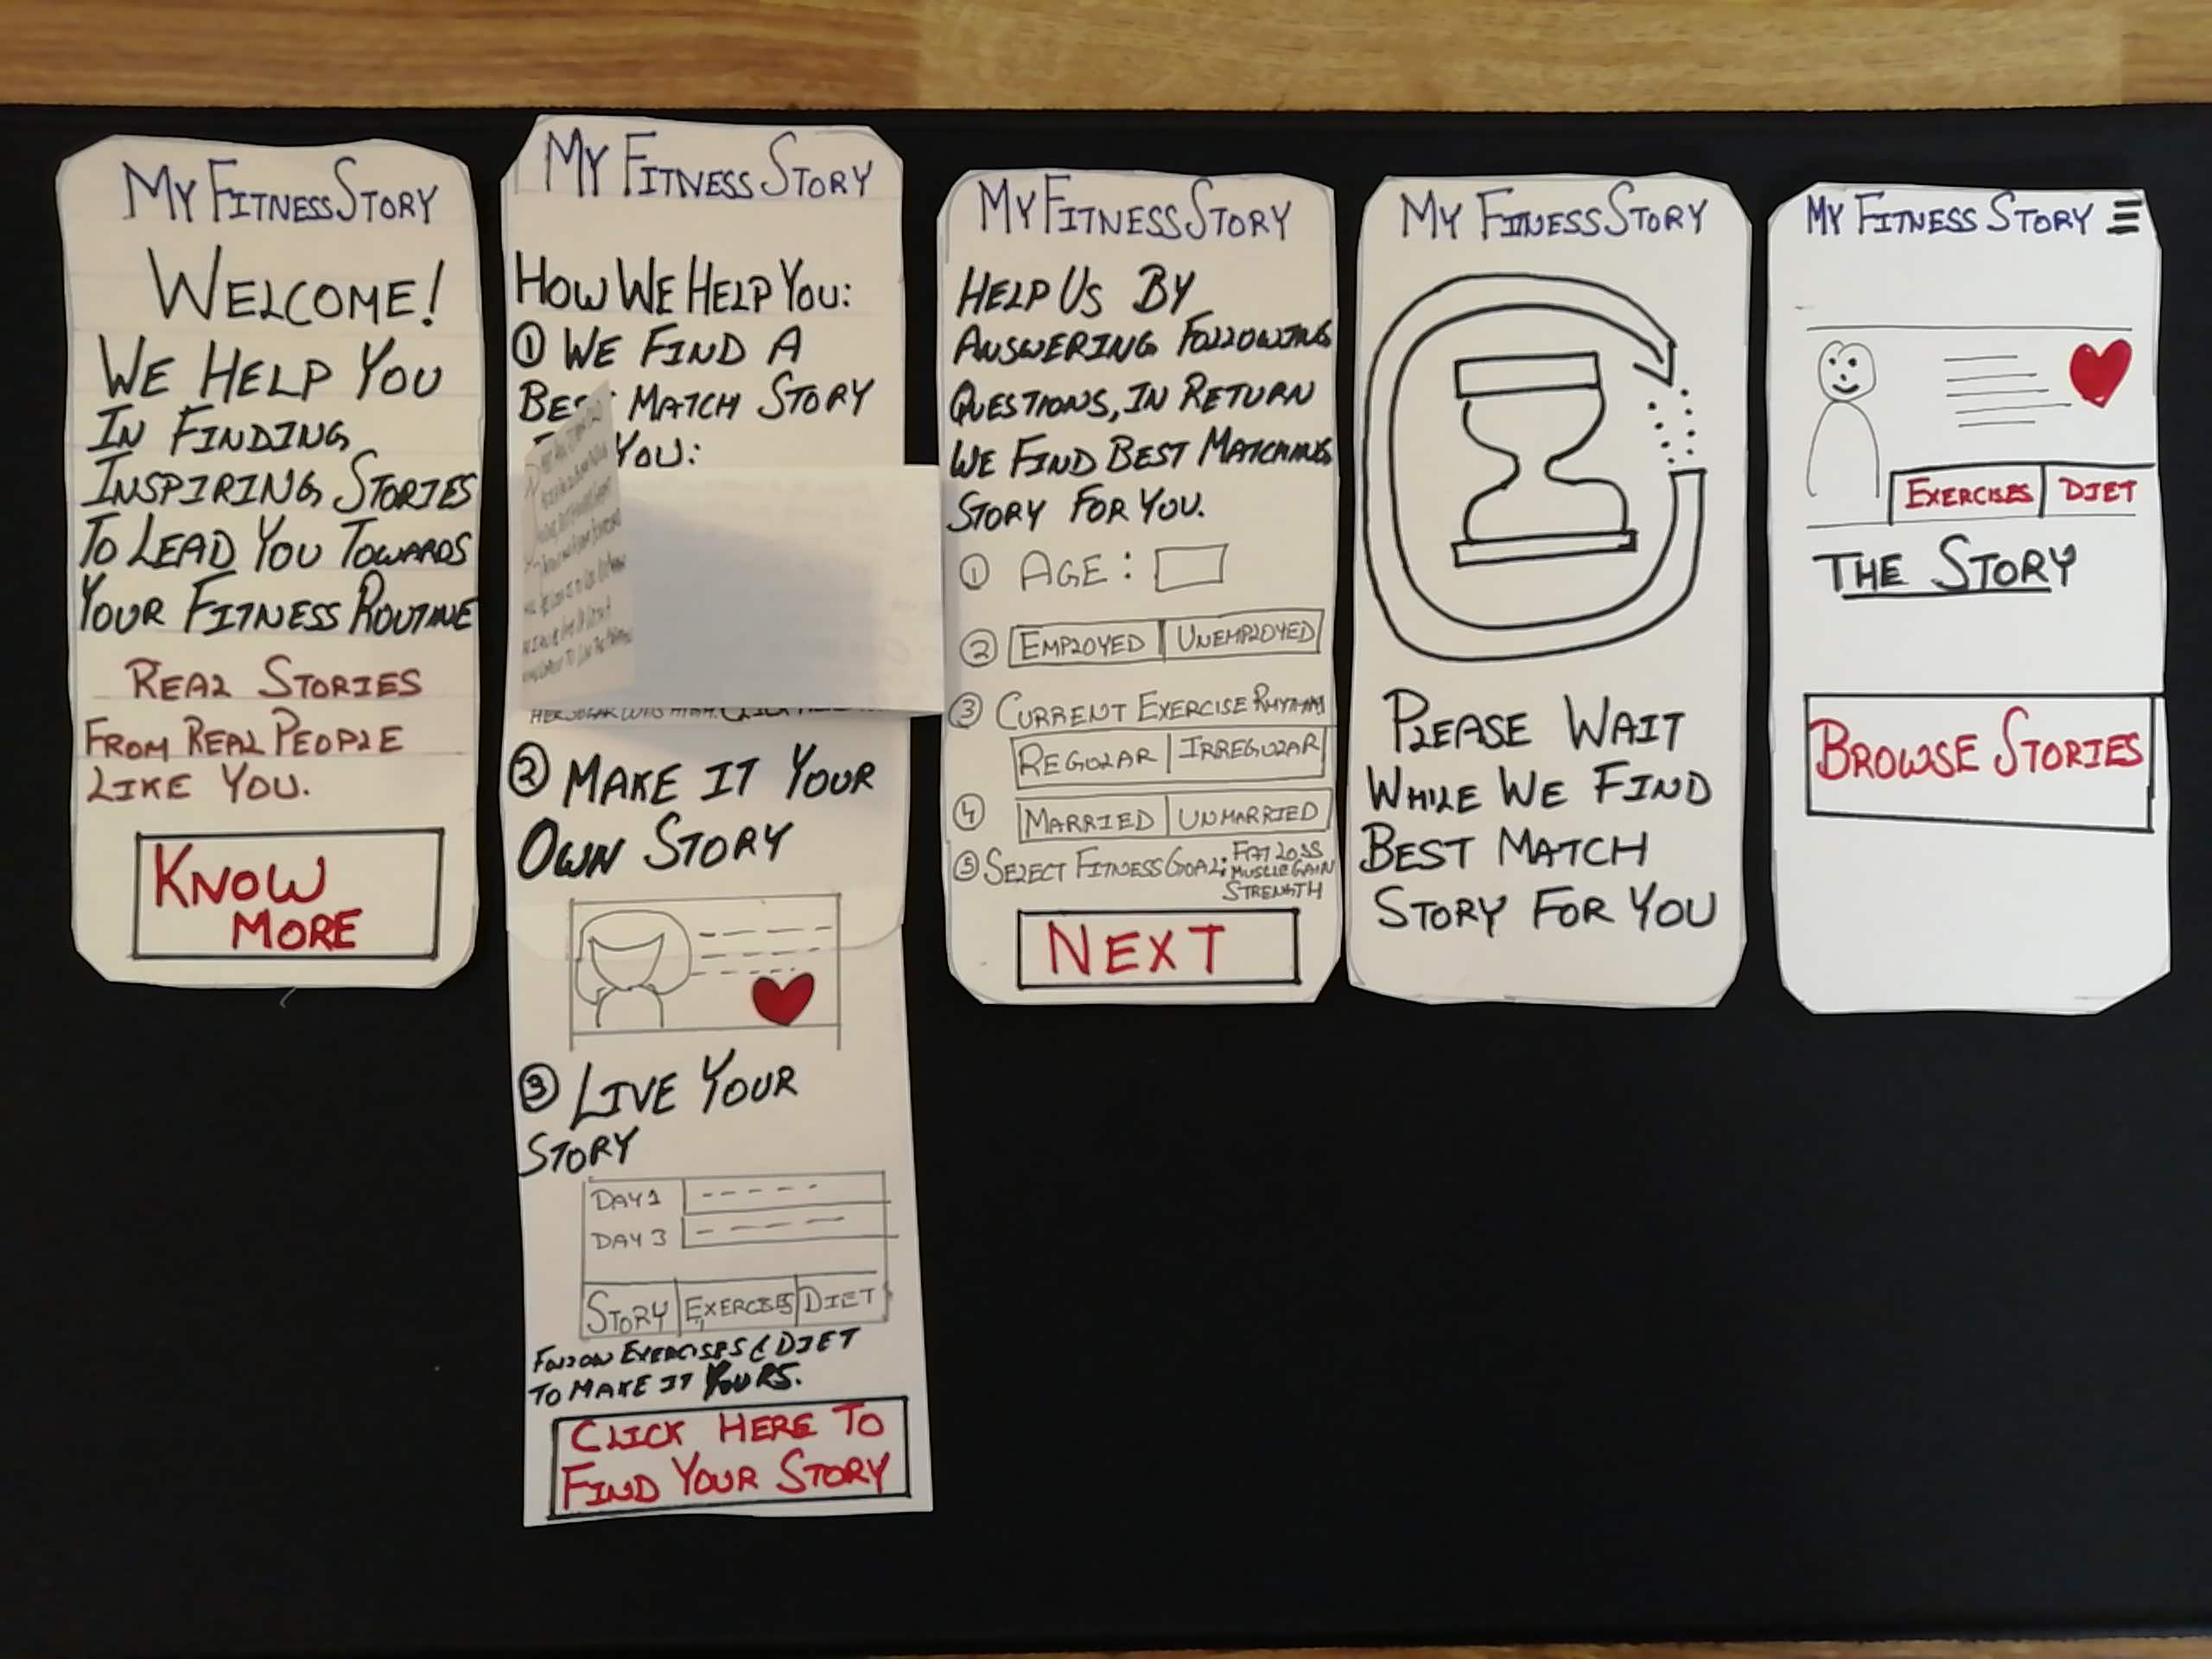 My Fitness Story
Welcome!
We Help You
In Finding
Inspiring Stories
To Lead You Towards
Your Fitness Routine
Real Stories
From Real People
Like You.
Know
More
My Fitness Story
How We Help You:
① We Find A
Best Match Story
You:
② Make It Your
Own Story
③ Live Your
Story
Day 1
Day 3
Story Exercises Diet
Follow Exercises & Diet
To Make It Yours.
Click Here To
Find Your Story
My Fitness Story
Help Us By
Answering Following
Questions, In Return
We Find Best Matching
Story For You.
① Age:
② Employed Unemployed
③ Current Exercise Rhythm
Regular Irregular
④ Married Unmarried
⑤ Select Fitness Goal: Fat Loss
Muscle Gain
Strength
Next
My Fitness Story
Please Wait
While We Find
Best Match
Story For You
My Fitness Story
Exercises Diet
The Story
Browse Stories